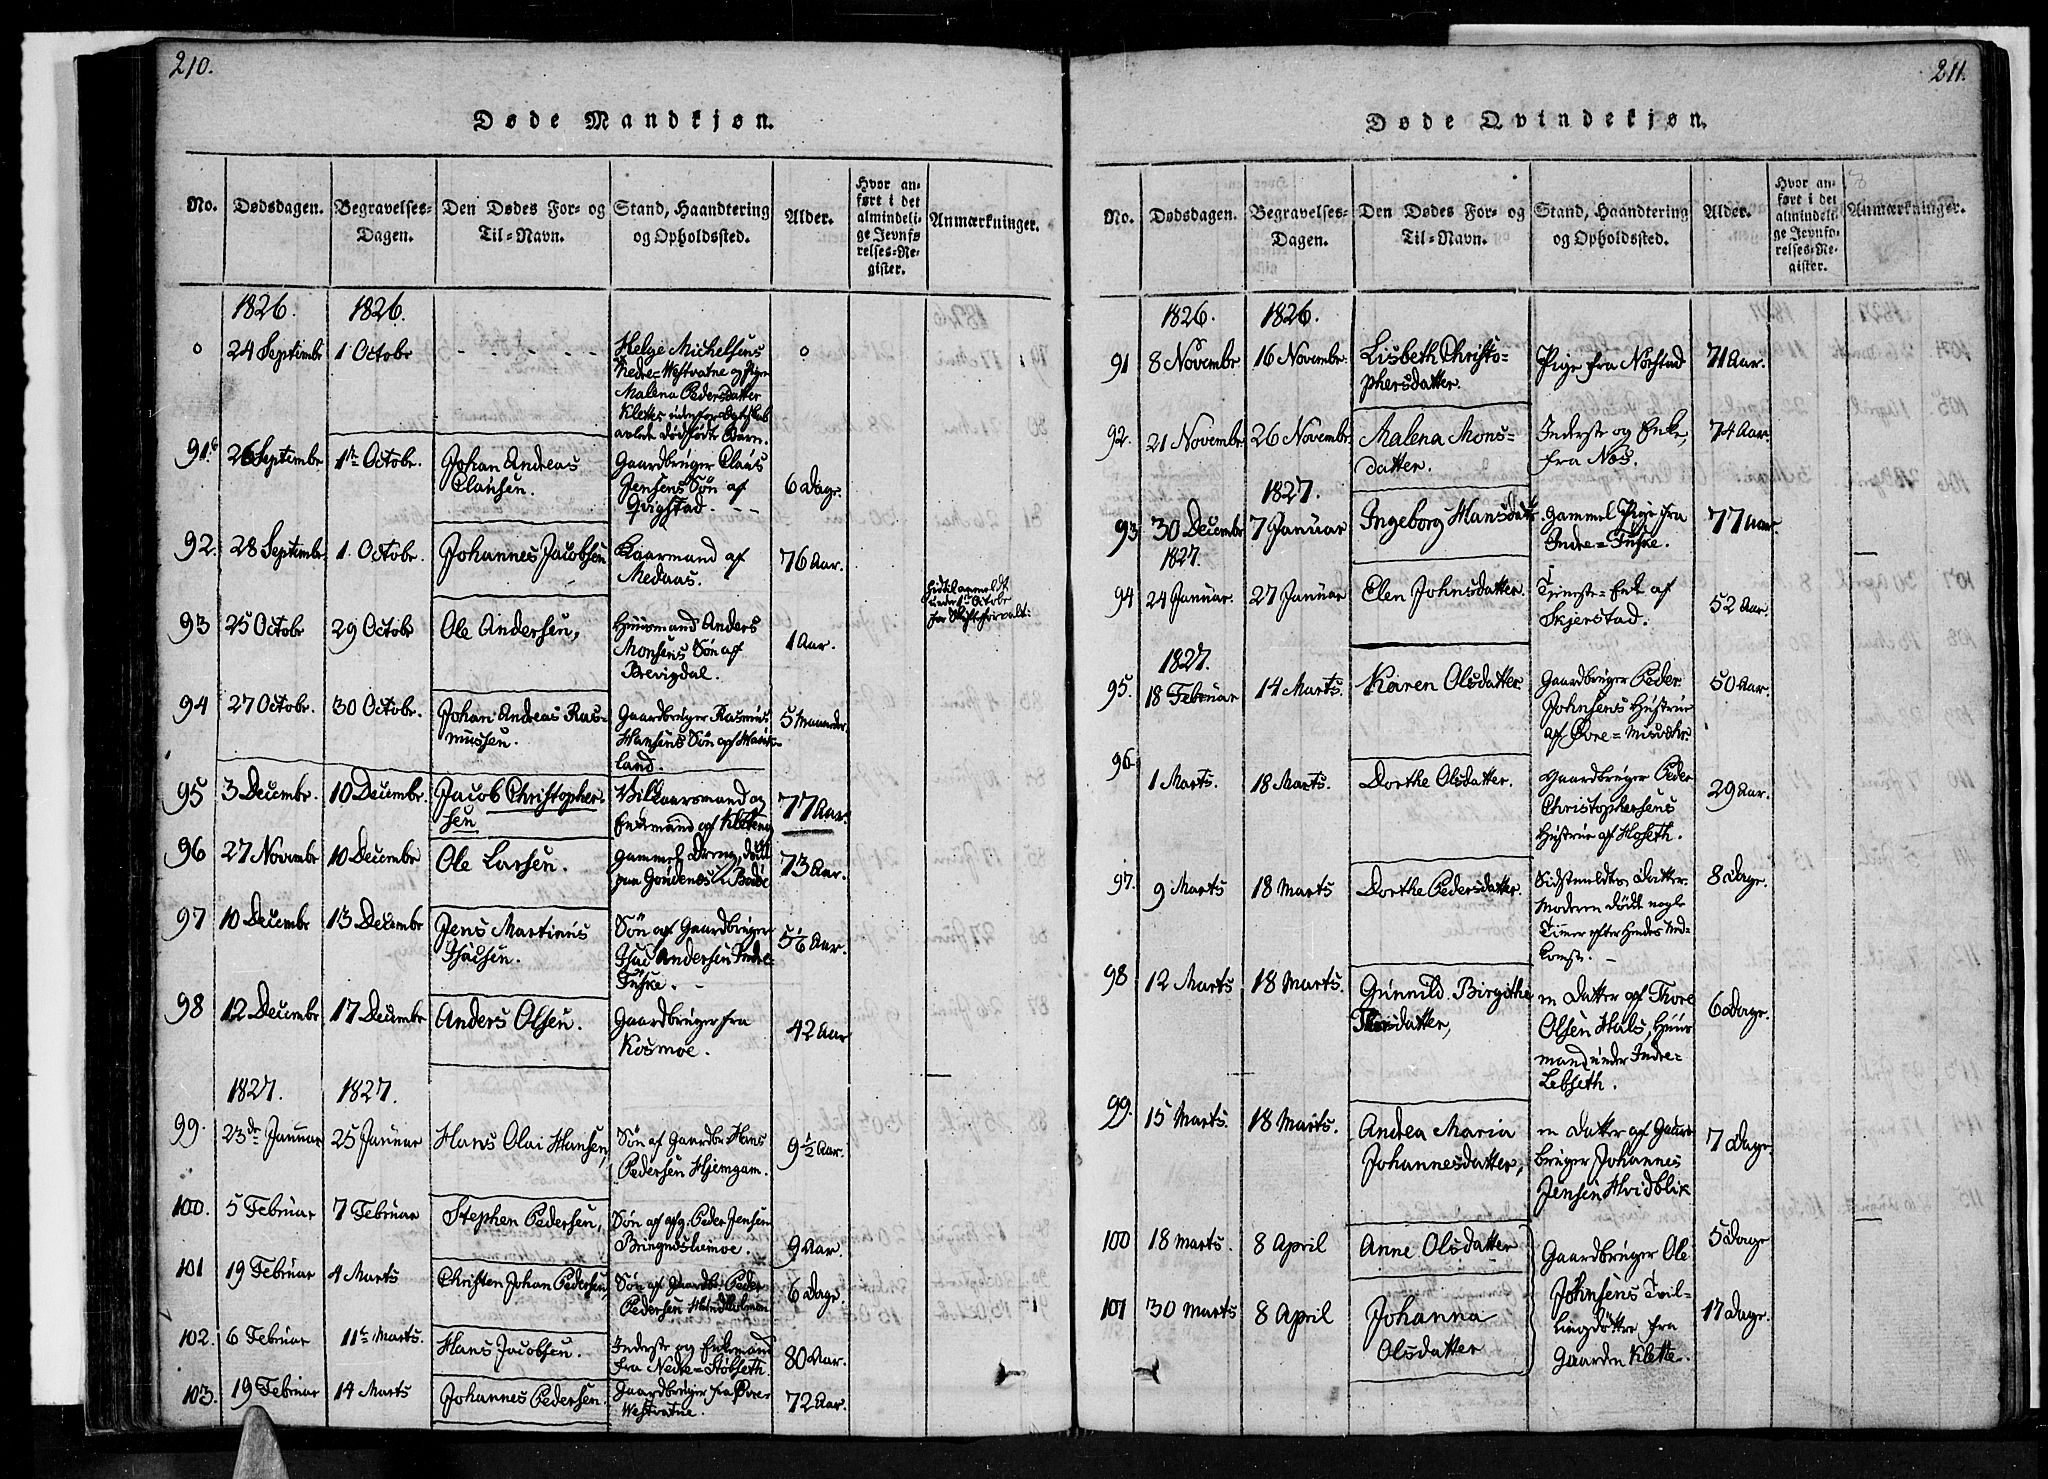 210.
Døde Mandkjøn.
No.
Dødsdagen.
Begravelses-
Dagen.
Den Dødes For- og
Til-Navn.
Stand, Haandtering
og Opholdssted.
Alder.
Hvor an-
ført i det
almindeli-
ge Jevnfø-
relses-Re-
gister.
Anmærkninger.
1826. 1826.
0 24 Septembr 1 Octobr - - - - - - Helge Michelsens 0
Nedre-Westvatne og Piger
Malena Pedersdatter
Klettes udenfor Egteskab
avlede dødfødte Barn.
91. 26 Septembr 1te Octobr. Johan Andreas Gaardbruger Claus 6 Dage.
Clausen. Jensens Søn af
Qvigstad. - -
92. 28 Septembr 1. Octobr. Johannes Jacobsen Kaarmand af 76 Aar.
Medaas.
Hidtil anmeldt
under 1te Octobr
for Skifteforvalt:
93 25 Octobr 29 Octobr Ole Andersen, Huusmand Anders 1 Aar.
Monsens Søn af
Brevigdal.
94 27 Octobr. 30 Octobr. Johan Andreas Ras- Gaardbruger Rasmus 5 Maaneder.
mussen. Hansens Søn af
land.
95 3 Decembr. 10 Decembr. Jacob Christopher- Vilkaarsmand og 77 Aar.
sen Enkemand af Kletten
96 27 Novembr 10 Decembr Ole Larsen. Gammel Dreng, død 73 Aar.
paa Godenes i Bodøe
97 10 Decembr 13 Decembr Jens Martinus Søn af Gaardbruger 5 1/6 Aar.
Isacsen. Isac Andersen Indre-
Fuske. -
98 12 Decembr 17 Decembr Anders Olsen. Gaardbruger fra 42 Aar
Kosmoe.
1827. 1827.
99. 23de Januar 25 Januar Hans Olai Hansen, Søn af Gaardbr. Hans 9 1/2 Aar.
Pedersen Hjemgam.
100. 5 Februar 7 Februar Stephen Pedersen, Søn af Peder Jensen 9 Aar.
Bringneslimoe.
101 19 Februar 4 Marts Christen Johan Pedersen, Søn af Gaardbr. Peder 6 Dage
Pedersen
102. 6 Februar 11te Marts. Hans Jacobsen. Inderste og Enkemand 80 Aar.
fra Nedre-Støbseth.
103. 19 Februar 14 Marts Johannes Pedersen. Gaardbruger fra Øvre- 72 Aar.
Westvatne.
211.
Døde Qvindekjøn.
No.
Dødsdagen.
Begravelses-
Dagen.
Den Dødes For- og
Til-Navn.
Stand, Haandtering
og Opholdssted.
Alder.
Hvor an-
ført i det
almindeli-
ge Jevnfø-
relses-Re-
gister.
Anmærkninger.
1826. 1826.
91 8 Novembr 16 Novembr. Lisbeth Christo- Pige fra Norstad 71 Aar.
phersdatter.
92. 21 Novembr 26 Novembr Malena Mons- Inderste og Enke, 74 Aar.
datter. fra Nøs.
1827.
93 30 Decembr 7 Januar Ingeborg Hansdatt Gammel Pige fra 77 Aar.
Indre-Fuske.
1827.
94 24 Januar. 27 Januar Elen Johnsdatter. Tjeneste-Enke af 52 Aar.
Skjerstad.
1827.
95. 18 Februar 14 Marts. Karen Olsdatter. Gaardbruger Peder 50 Aar.
Johnsens Hustrue
af Øvre-Misvær.
96. 1 Marts. 18 Marts. Dorthe Olsdatter. Gaardbruger Peder 29 Aar.
Christophersens
Hustrue af Hoseth.
97. 9 Marts 18 Marts Dorthe Pedersdatter. Sidstmeldtes Datter. 8 Dage.
Moderen døde nogle
Timer efter hendes Ned-
komst. -
98 12 Marts 18 Marts. Gunnild Birgithe en Datter af Thore 6 Dage.
Thorsdatter, Olsen Hals, Huus-
mand under Indre-
Lebseth.
99. 15 Marts. 18 Marts. Andrea Maria en Datter af Gaard- 7 Dage
Johannesdatter, bruger Johannes
Jensen Hvidblik
100 18 Marts. 8 April Anne Olsdatter Gaardbruger Ole 5 Dage
Johnsens Tvil-
101 30 Marts 8 April Johanna lingdøttre fra 17 Dage.
Olsdatter Gaarden Klette.